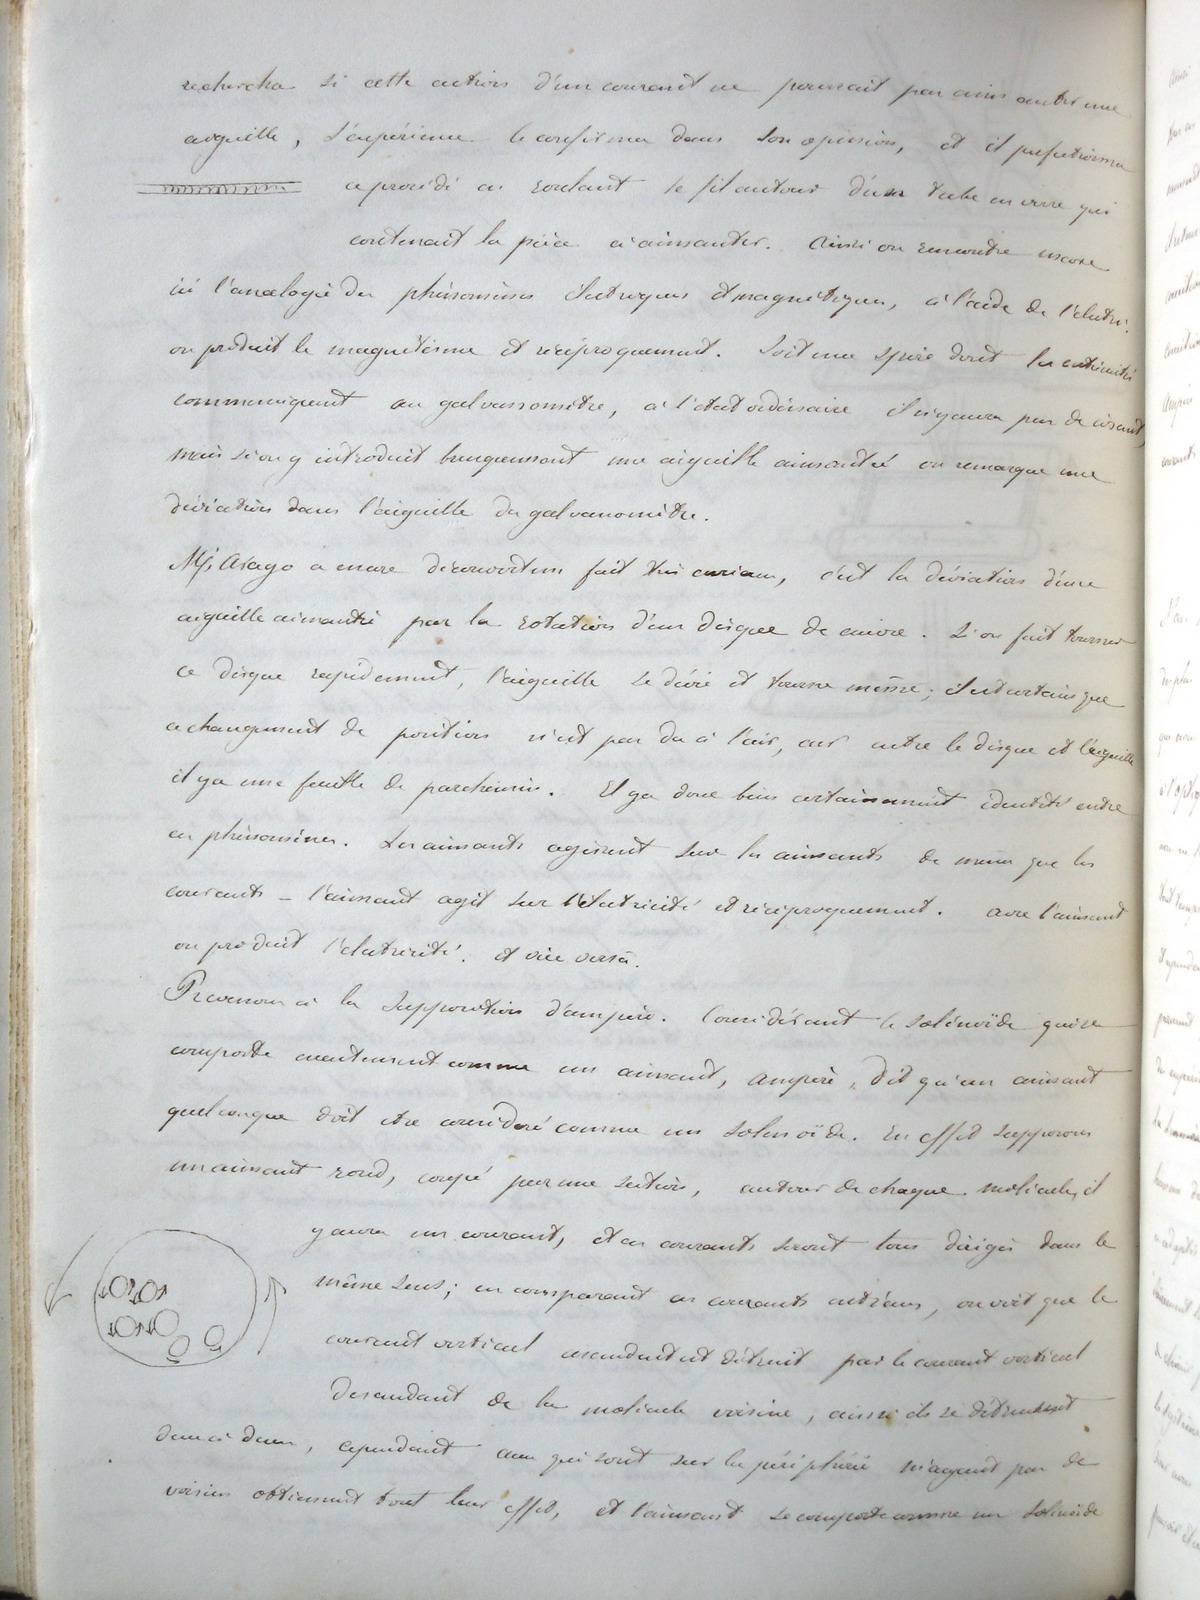 rechercha si cette action d'un courant ne pourrait pas aimanter une
aiguille, l'expérience le confirma dans son opinion, et il perfectionna
ce procédé en roulant le fil autour d'un tube en verre qui
contenait la pièce à aimanter. Ainsi on rencontre encore
ici l'analogie des phénomènes électriques et magnétiques, à l'aide de l'électri.
on produit le magnétisme et réciproquement. Soit une spire dont les extrémités
communiquent au galvanomètre, à l'état ordinaire il n'y aura pas de courant,
mais si on y introduit brusquement une aiguille aimantée on remarque une
déviation dans l'aiguille du galvanomètre.
Mr Arago a encore découvert un fait très curieux, c'est la déviation d'une
aiguille aimantée par la rotation d'un disque de cuivre. Si on fait tourner
ce disque rapidement, l'aiguille se dévie et tourne même; il est certain que
ce changement de position n'est pas du à l'air, car entre le disque et l'aiguille
il y a une feuille de parchemin. Il y a donc bien certainement identité entre
ces phénomènes. Les aimants agissent sur les aimants de même que les
courants – l'aimant agit sur l'électricité et réciproquement. avec l'aimant
on produit l'électricité. et vice versâ.
Revenons à la supposition d'ampère. Considérant le solénoïde qui se
comporte exactement comme un aimant, ampère, dit qu'un aimant
quelconque doit etre considéré comme un solénoïde. En effet supposons
un aimant rond, coupé par une section, autour de chaque molécule, il
y aura un courant, et ces courants seront tous dirigés dans le
même sens; en comparant ces courants entr'eux, on voit que le
courant vertical ascendant est détruit par le courant vertical
descendant de la molécule voisine, ainsi ils se détruisent
deux à deux, cependant ceux qui sont sur la périphérie n'ayant pas de
voisins obtiennent tout leur effet, et l'aimant se comporte comme un solénoïde